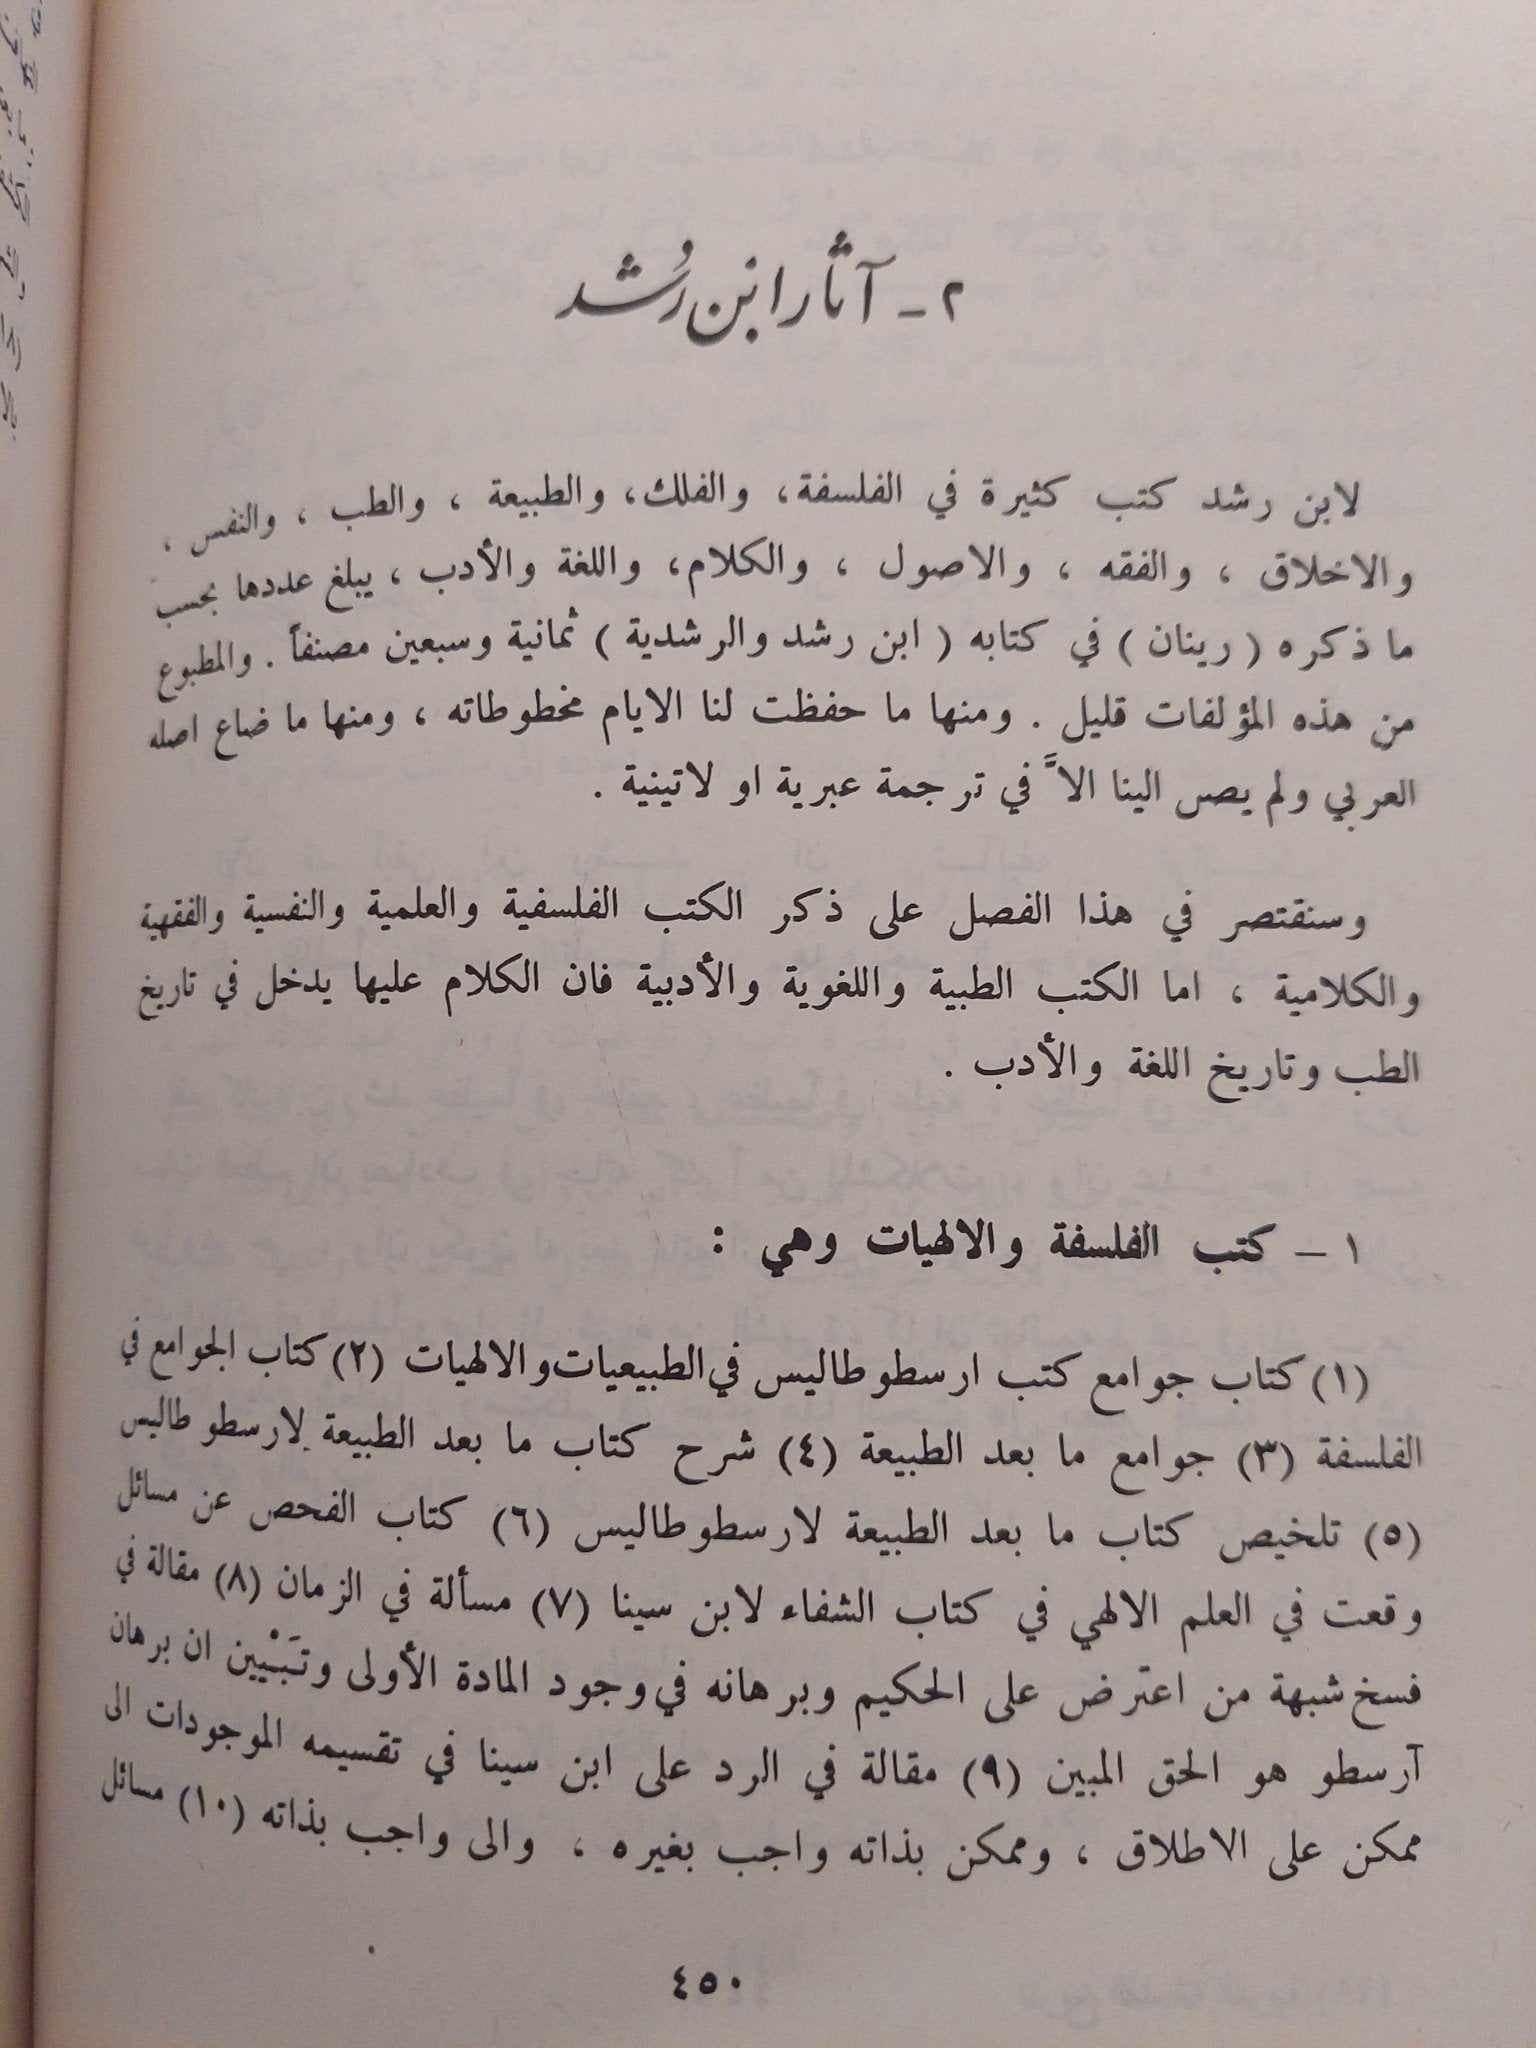 ٢ - آثار ابن رُشد
لابن رشد كتب كثيرة في الفلسفة، والفلك، والطبيعة ، والطب ، والنفس ،
والاخلاق ، والفقه ، والاصول ، والكلام، واللغة والأدب ، يبلغ عددها بحسب
ما ذكره ( رينان ) في كتابه ( ابن رشد والرشدية ) ثمانية وسبعين مصنفاً . والمطبوع
من هذه المؤلفات قليل . ومنها ما حفظت لنا الايام مخطوطاته ، ومنها ما ضاع اصله
العربي ولم يصل الينا الاَّ في ترجمة عبرية او لاتينية .
وسنقتصر في هذا الفصل على ذكر الكتب الفلسفية والعلمية والنفسية والفقهية
والكلامية ، اما الكتب الطبية واللغوية والأدبية فان الكلام عليها يدخل في تاريخ
الطب وتاريخ اللغة والأدب .
١ - كتب الفلسفة والالهيات وهي :
(١) كتاب جوامع كتب ارسطوطاليس في الطبيعيات والالهيات (٢) كتاب الجوامع في
الفلسفة (٣) جوامع ما بعد الطبيعة (٤) شرح كتاب ما بعد الطبيعة لارسطوطاليس
(٥) تلخيص كتاب ما بعد الطبيعة لارسطوطاليس (٦) كتاب الفحص عن مسائل
وقعت في العلم الالهي في كتاب الشفاء لابن سينا (٧) مسألة في الزمان (٨) مقالة في
فسخ شبهة من اعترض على الحكيم وبرهانه في وجود المادة الأولى وتَبْيين ان برهان
آرسطو هو الحق المبين (٩) مقالة في الرد على ابن سينا في تقسيمه الموجودات الى
ممكن على الاطلاق ، وممكن بذاته واجب بغيره ، والى واجب بذاته (١٠) مسائل
٤٥٠